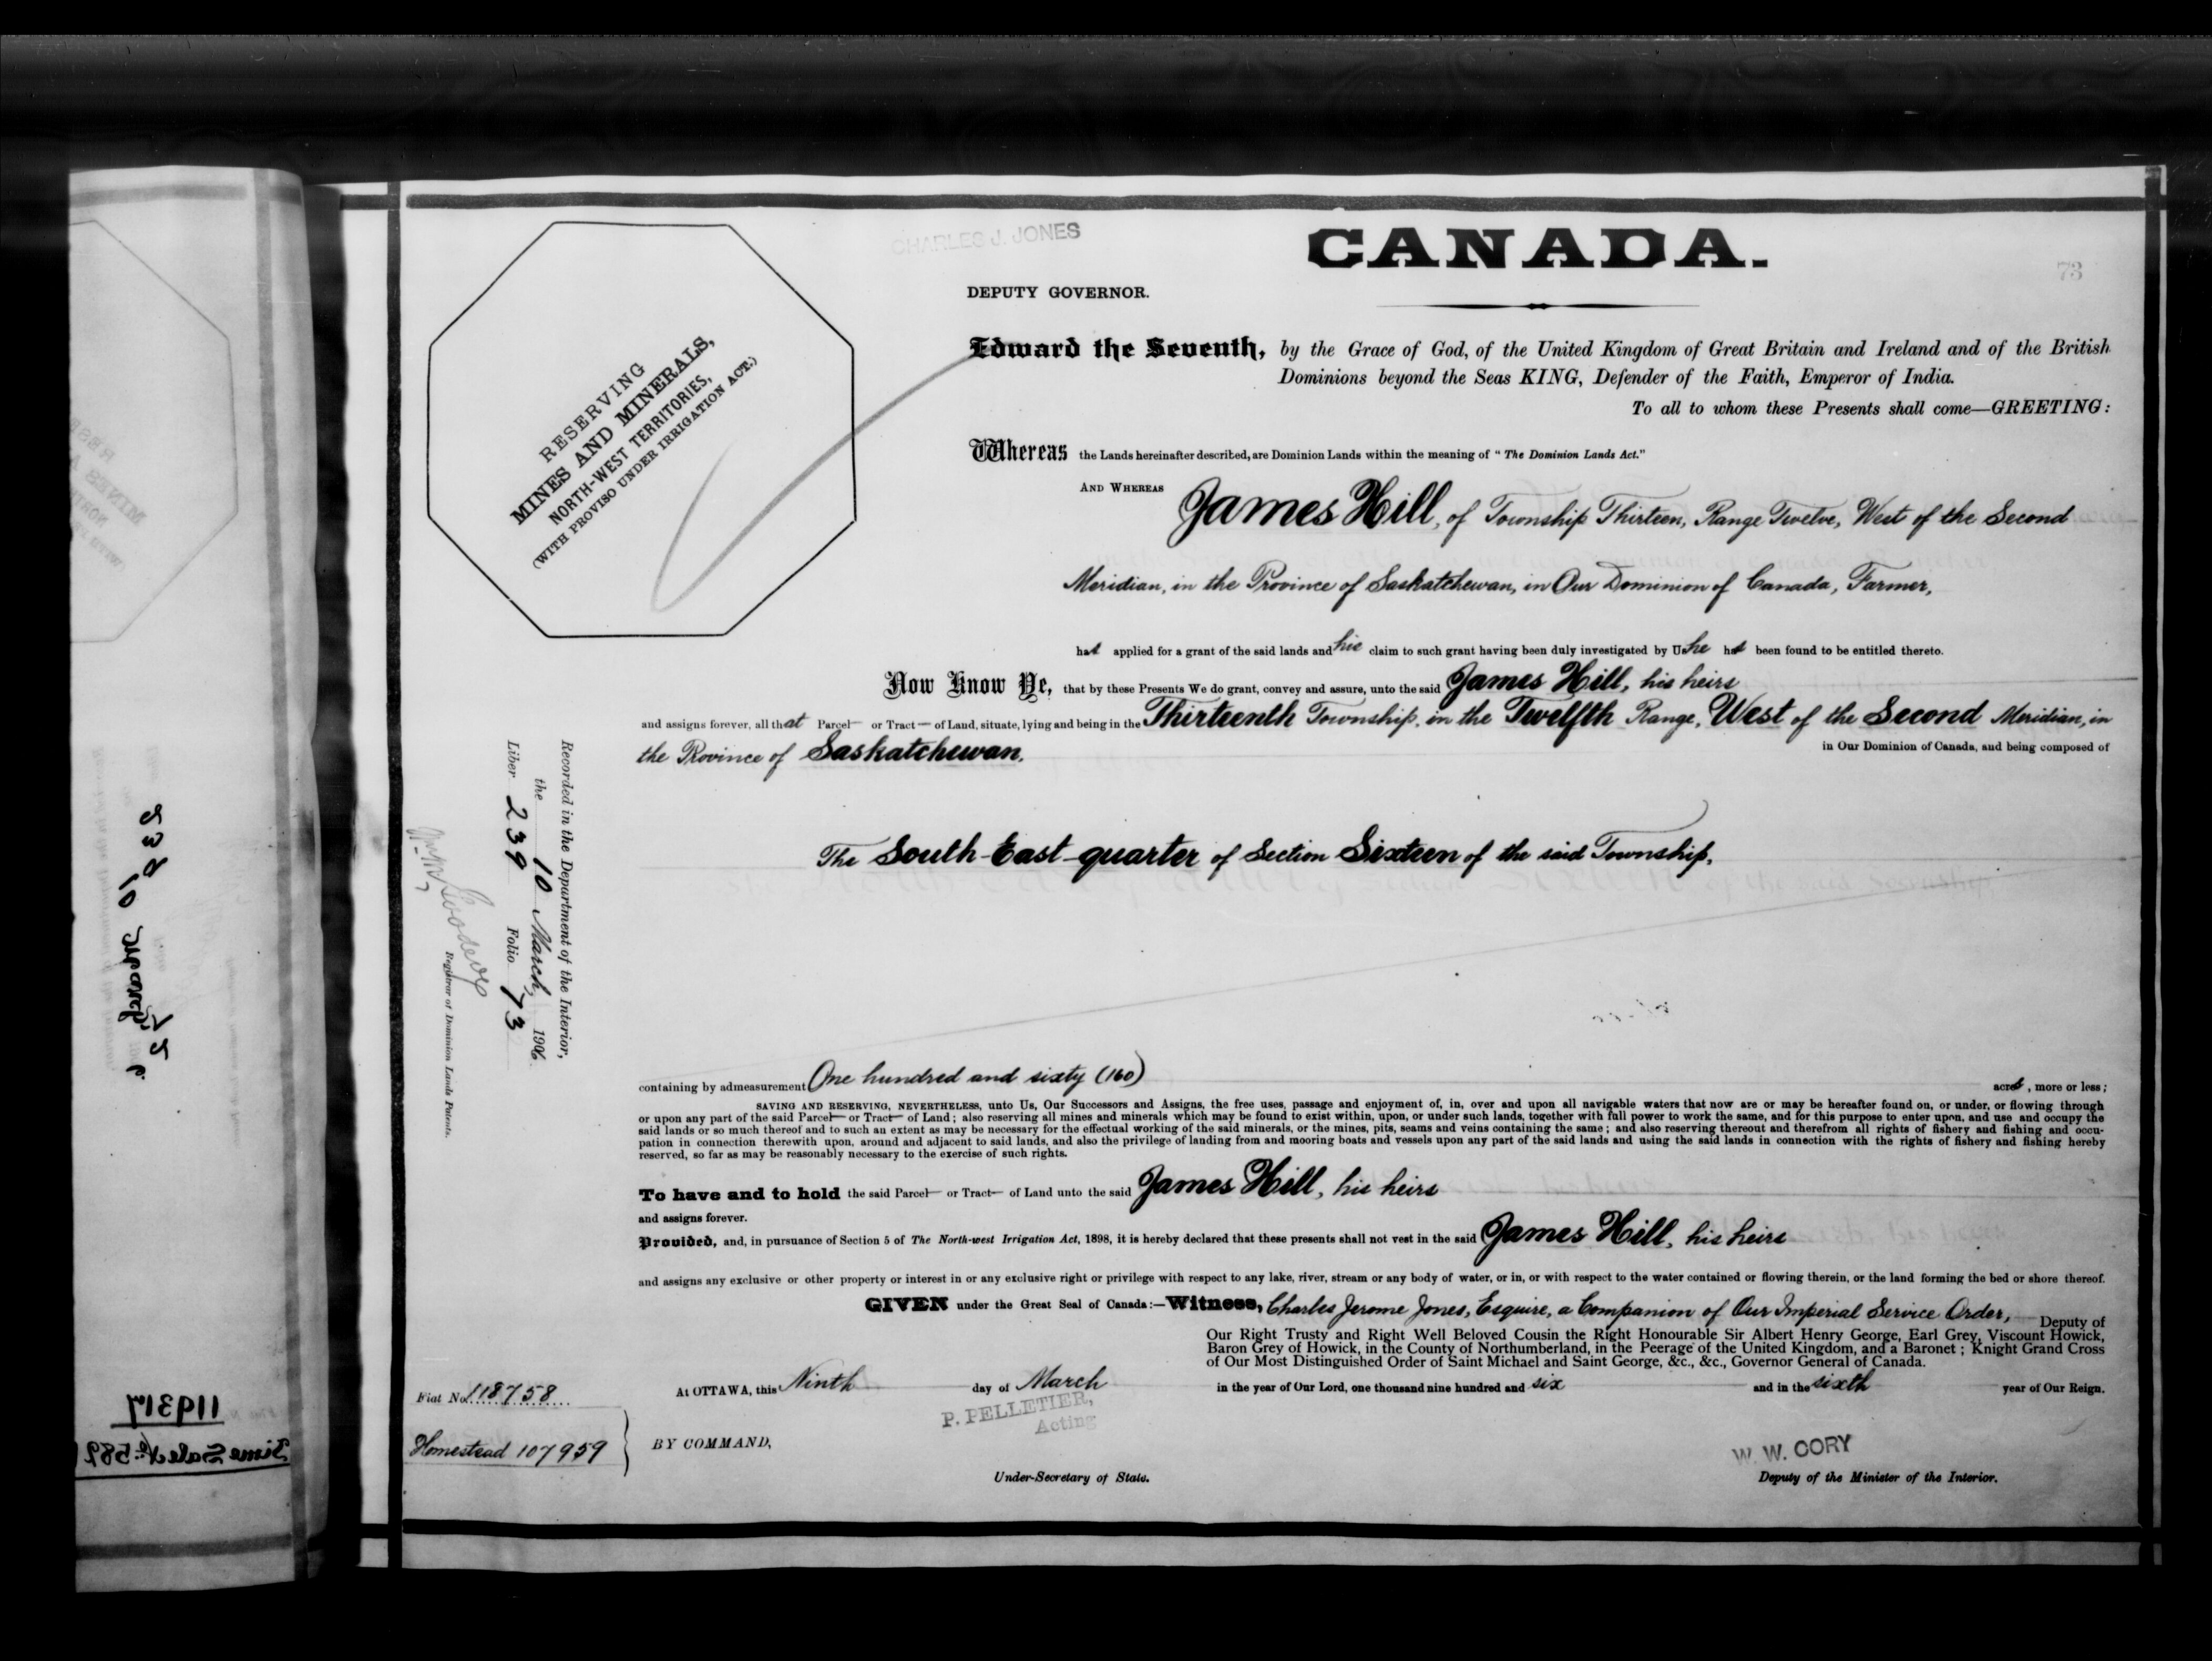 CHARLES J. JONES
CANADA.
73
DEPUTY GOVERNOR.
RESERVING
MINES AND MINERALS,
NORTH-WEST TERRITORIES,
(WITH PROVISO UNDER IRRIGATION ACT.)
Edward the Seventh, by the Grace of God, of the United Kingdom of Great Britain and Ireland and of the British
Dominions beyond the Seas KING, Defender of the Faith, Emperor of India.
To all to whom these Presents shall come—GREETING:
Whereas the Lands hereinafter described, are Dominion Lands within the meaning of "The Dominion Lands Act."
AND WHEREAS James Hill, of Township Thirteen, Range Twelve, West of the Second
Meridian, in the Province of Saskatchewan, in Our Dominion of Canada, Farmer,
has applied for a grant of the said lands and his claim to such grant having been duly investigated by Us he has been found to be entitled thereto.
Now Know Ye, that by these Presents We do grant, convey and assure, unto the said James Hill, his heirs
and assigns forever, all that Parcel— or Tract— of Land, situate, lying and being in the Thirteenth Township, in the Twelfth Range, West of the Second Meridian, in
the Province of Saskatchewan. in Our Dominion of Canada, and being composed of
The South-East-quarter of Section Sixteen of the said Township.
Recorded in the Department of the Interior,
the 10 March, 1906.
Liber 239 Folio 73
Registrar of Dominion Lands Patents.
containing by admeasurement One hundred and sixty (160) acres, more or less;
SAVING AND RESERVING, NEVERTHELESS, unto Us, Our Successors and Assigns, the free uses, passage and enjoyment of, in, over and upon all navigable waters that now are or may be hereafter found on, or under, or flowing through
or upon any part of the said Parcel— or Tract— of Land; also reserving all mines and minerals which may be found to exist within, upon, or under such lands, together with full power to work the same, and for this purpose to enter upon, and use and occupy the
said lands or so much thereof and to such an extent as may be necessary for the effectual working of the said minerals, or the mines, pits, seams and veins containing the same; and also reserving thereout and therefrom all rights of fishery and fishing and occu-
pation in connection therewith upon, around and adjacent to said lands, and also the privilege of landing from and mooring boats and vessels upon any part of the said lands and using the said lands in connection with the rights of fishery and fishing hereby
reserved, so far as may be reasonably necessary to the exercise of such rights.
To have and to hold the said Parcel— or Tract— of Land unto the said James Hill, his heirs
and assigns forever.
Provided, and, in pursuance of Section 5 of The North-west Irrigation Act, 1898, it is hereby declared that these presents shall not vest in the said James Hill, his heirs
and assigns any exclusive or other property or interest in or any exclusive right or privilege with respect to any lake, river, stream or any body of water, or in, or with respect to the water contained or flowing therein, or the land forming the bed or shore thereof.
GIVEN under the Great Seal of Canada:—Witness, Charles Jerome Jones, Esquire, a Companion of Our Imperial Service Order, Deputy of
Our Right Trusty and Right Well Beloved Cousin the Right Honourable Sir Albert Henry George, Earl Grey, Viscount Howick,
Baron Grey of Howick, in the County of Northumberland, in the Peerage of the United Kingdom, and a Baronet; Knight Grand Cross
of Our Most Distinguished Order of Saint Michael and Saint George, &c., &c., Governor General of Canada.
At OTTAWA, this Ninth day of March in the year of Our Lord, one thousand nine hundred and six and in the sixth year of Our Reign.
Fiat No. 118758
P. PELLETIER,
Acting
Homestead 107959
BY COMMAND,
W. W. CORY
Under-Secretary of State.
Deputy of the Minister of the Interior.
119317